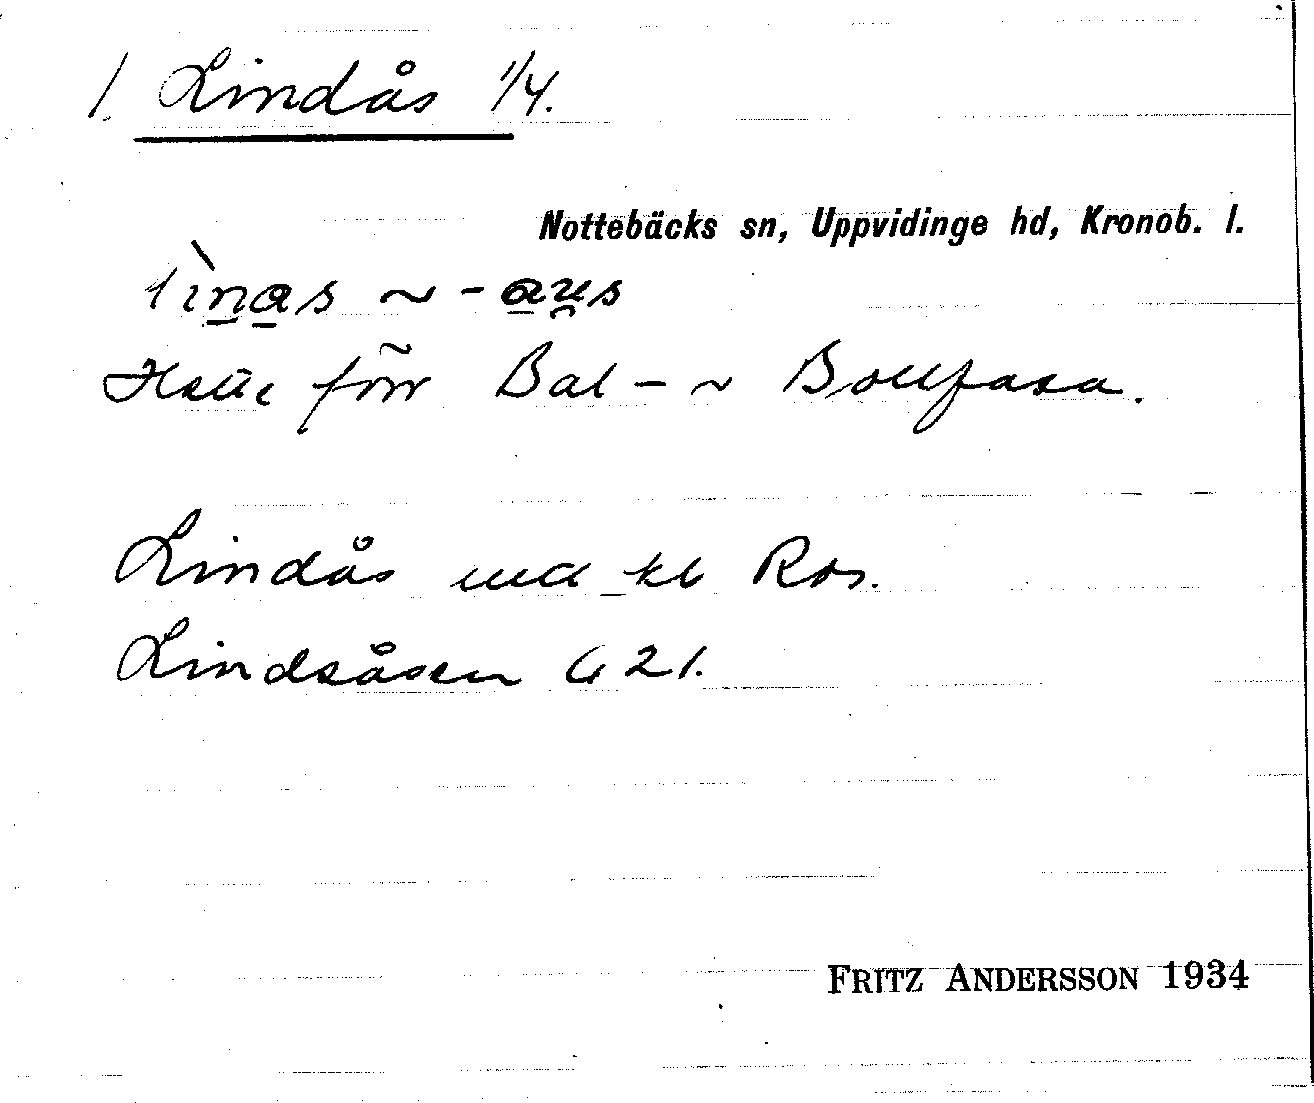 1. Lindås 1/4.
Nottebäcks sn, Uppvidinge hd, Kronob. l.
lìnas ~ -aus
Hette förr Bal- ~ Bollfasa.
Lindås und kb Ros.
Lindsåsen G 21.
FRITZ ANDERSSON 1934